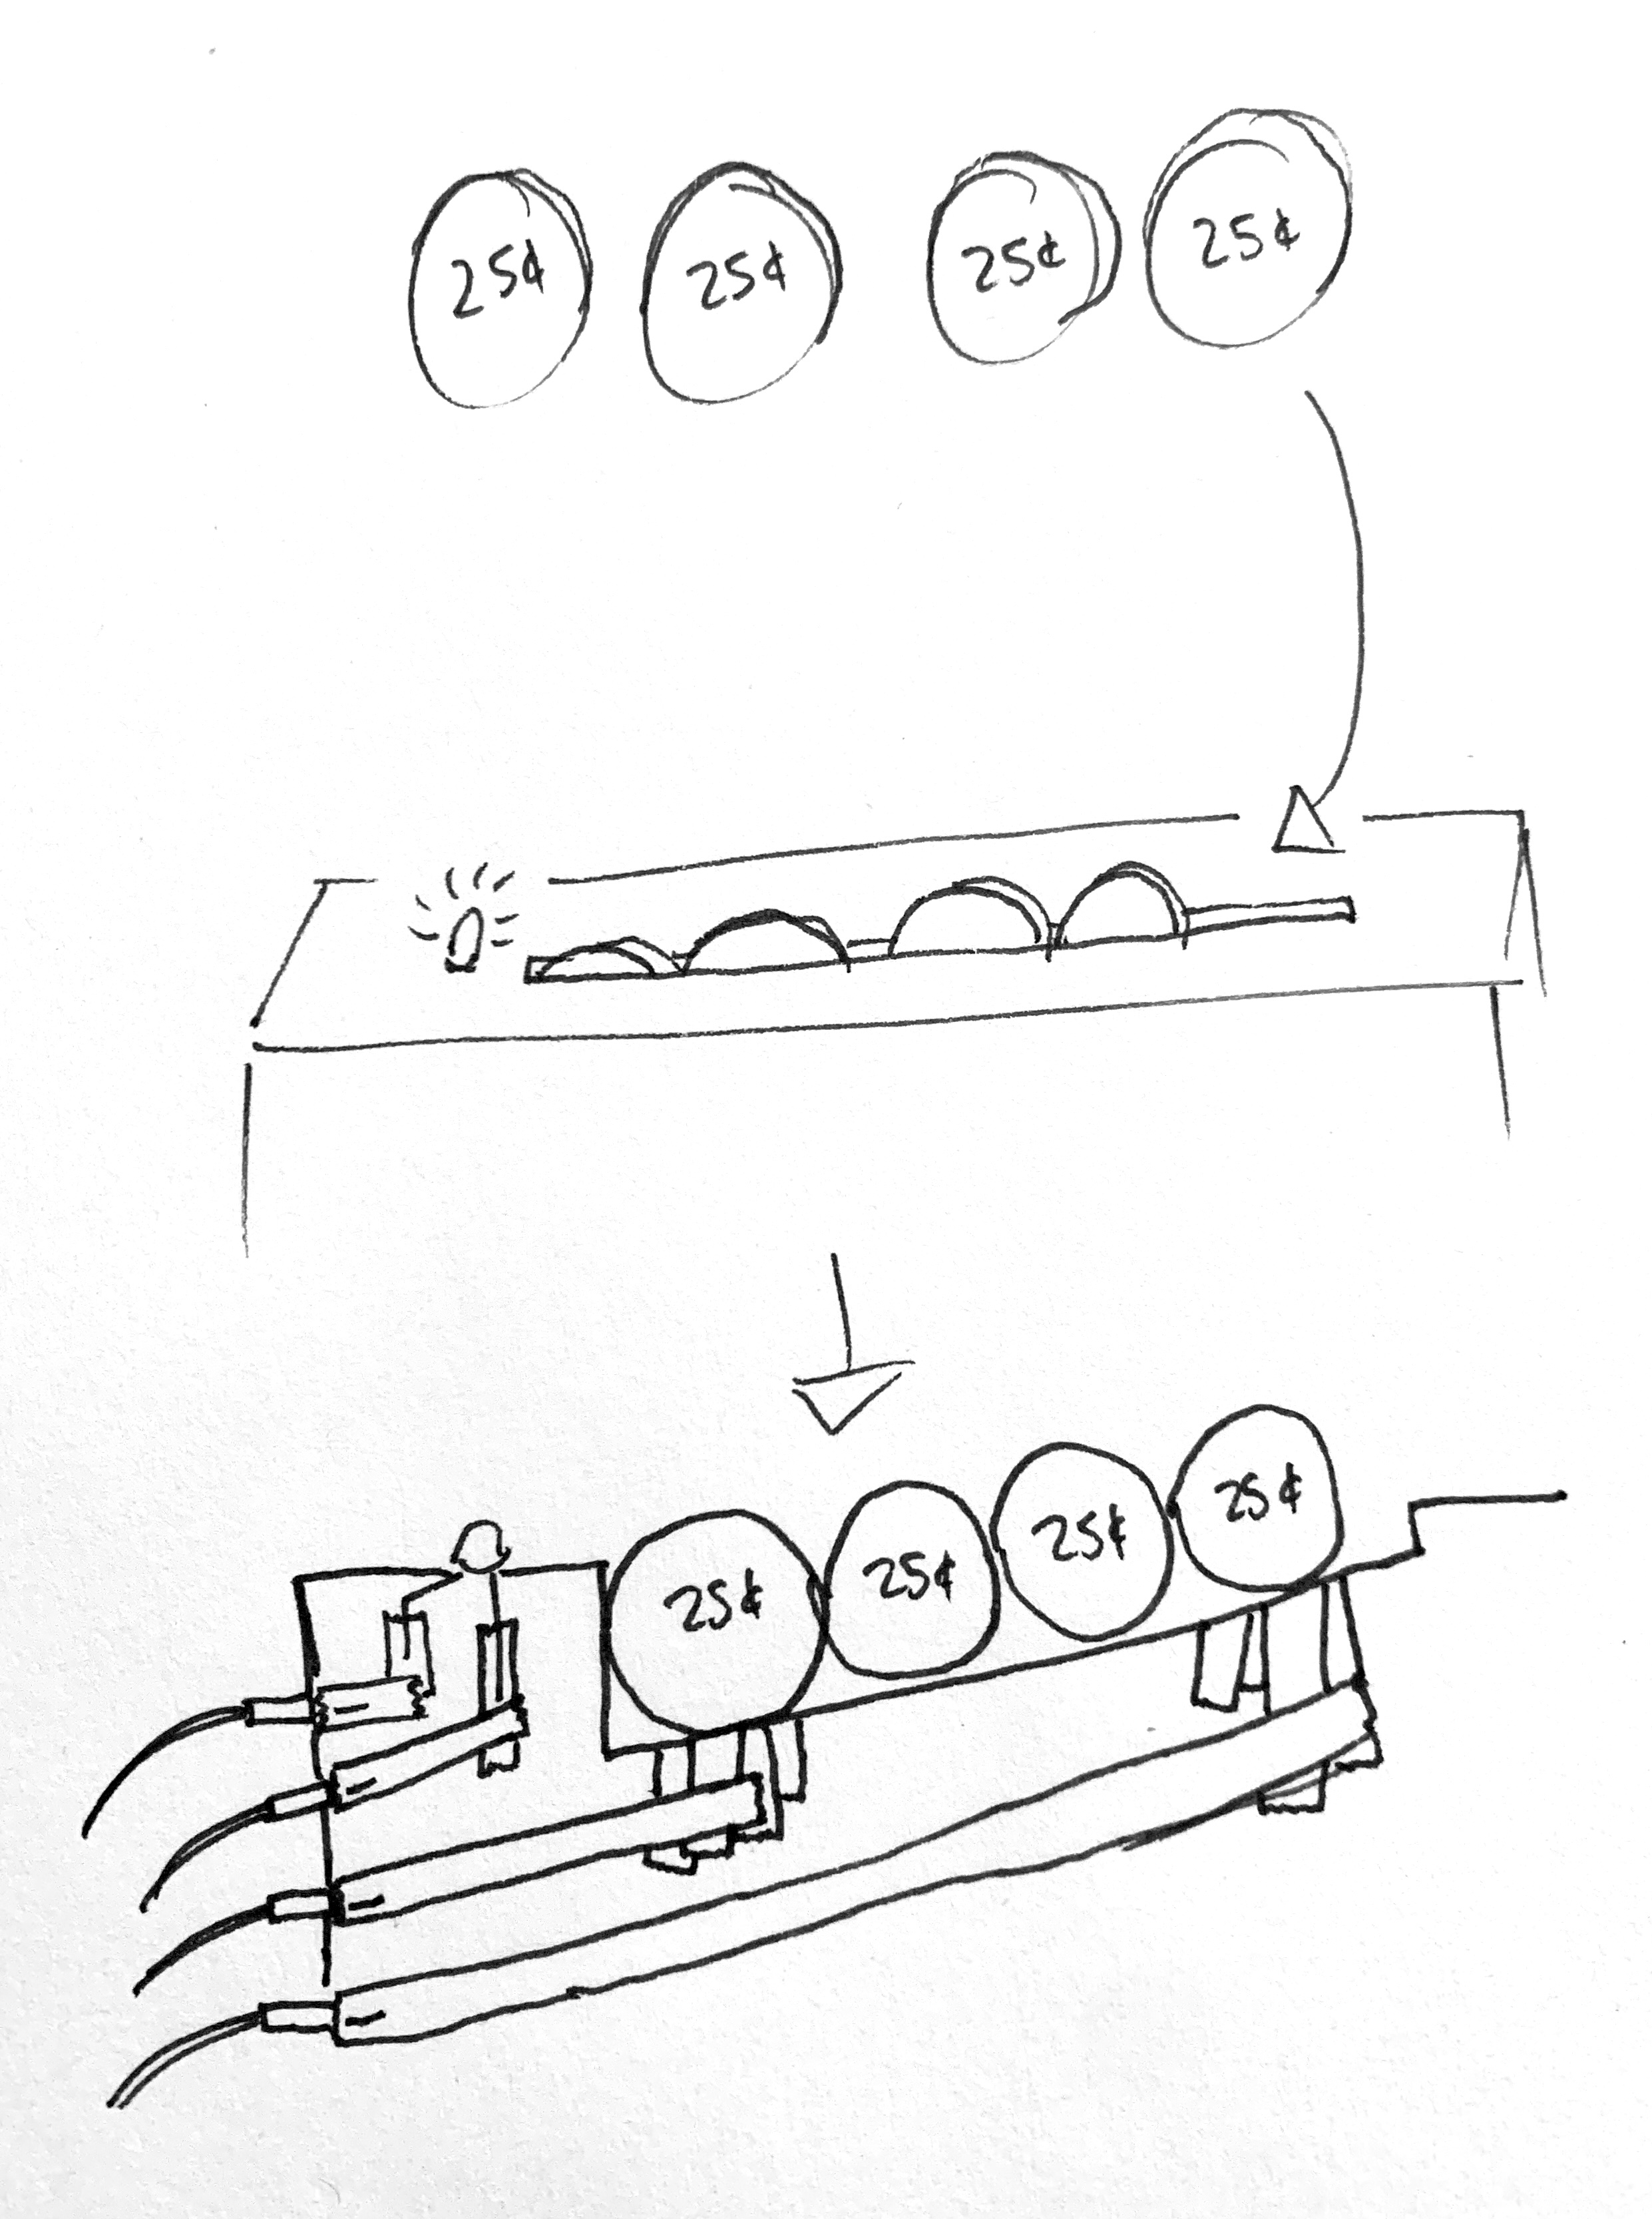 25¢ 25¢ 25¢ 25¢
25¢ 25¢ 25¢ 25¢